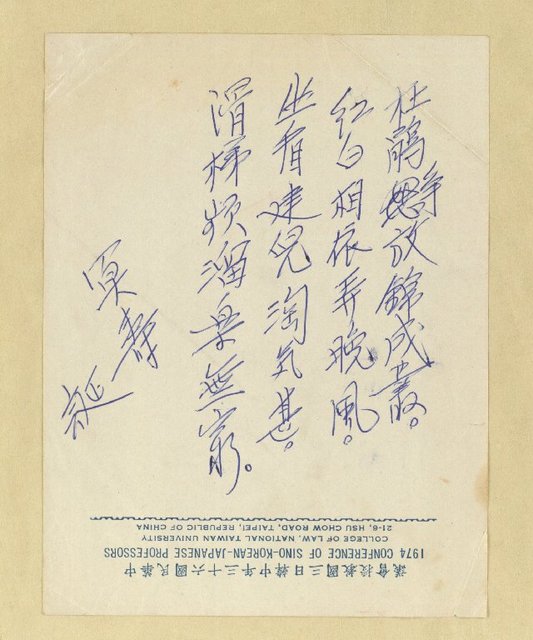 杜鵑爭放錦成叢。
紅白相依弄晚風。
坐看建兒淘氣甚。
滑梯頻溜樂無窮。
中華民國六十三年中韓日三國教授會議
1974 CONFERENCE OF SINO-KOREAN-JAPANESE PROFESSORS
COLLEGE OF LAW, NATIONAL TAIWAN UNIVERSITY
21-6, HSU CHOW ROAD, TAIPEI, REPUBLIC OF CHINA